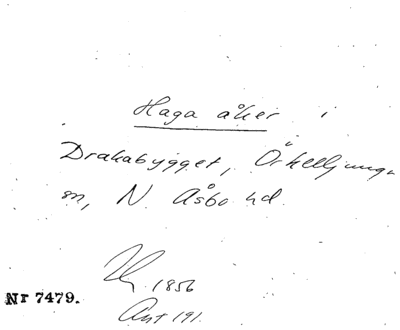 Haga åker i
Drakabygget, Örkelljunga
sn, N. Åsbo hd.
1856
Nr 7479.
Akt 191.